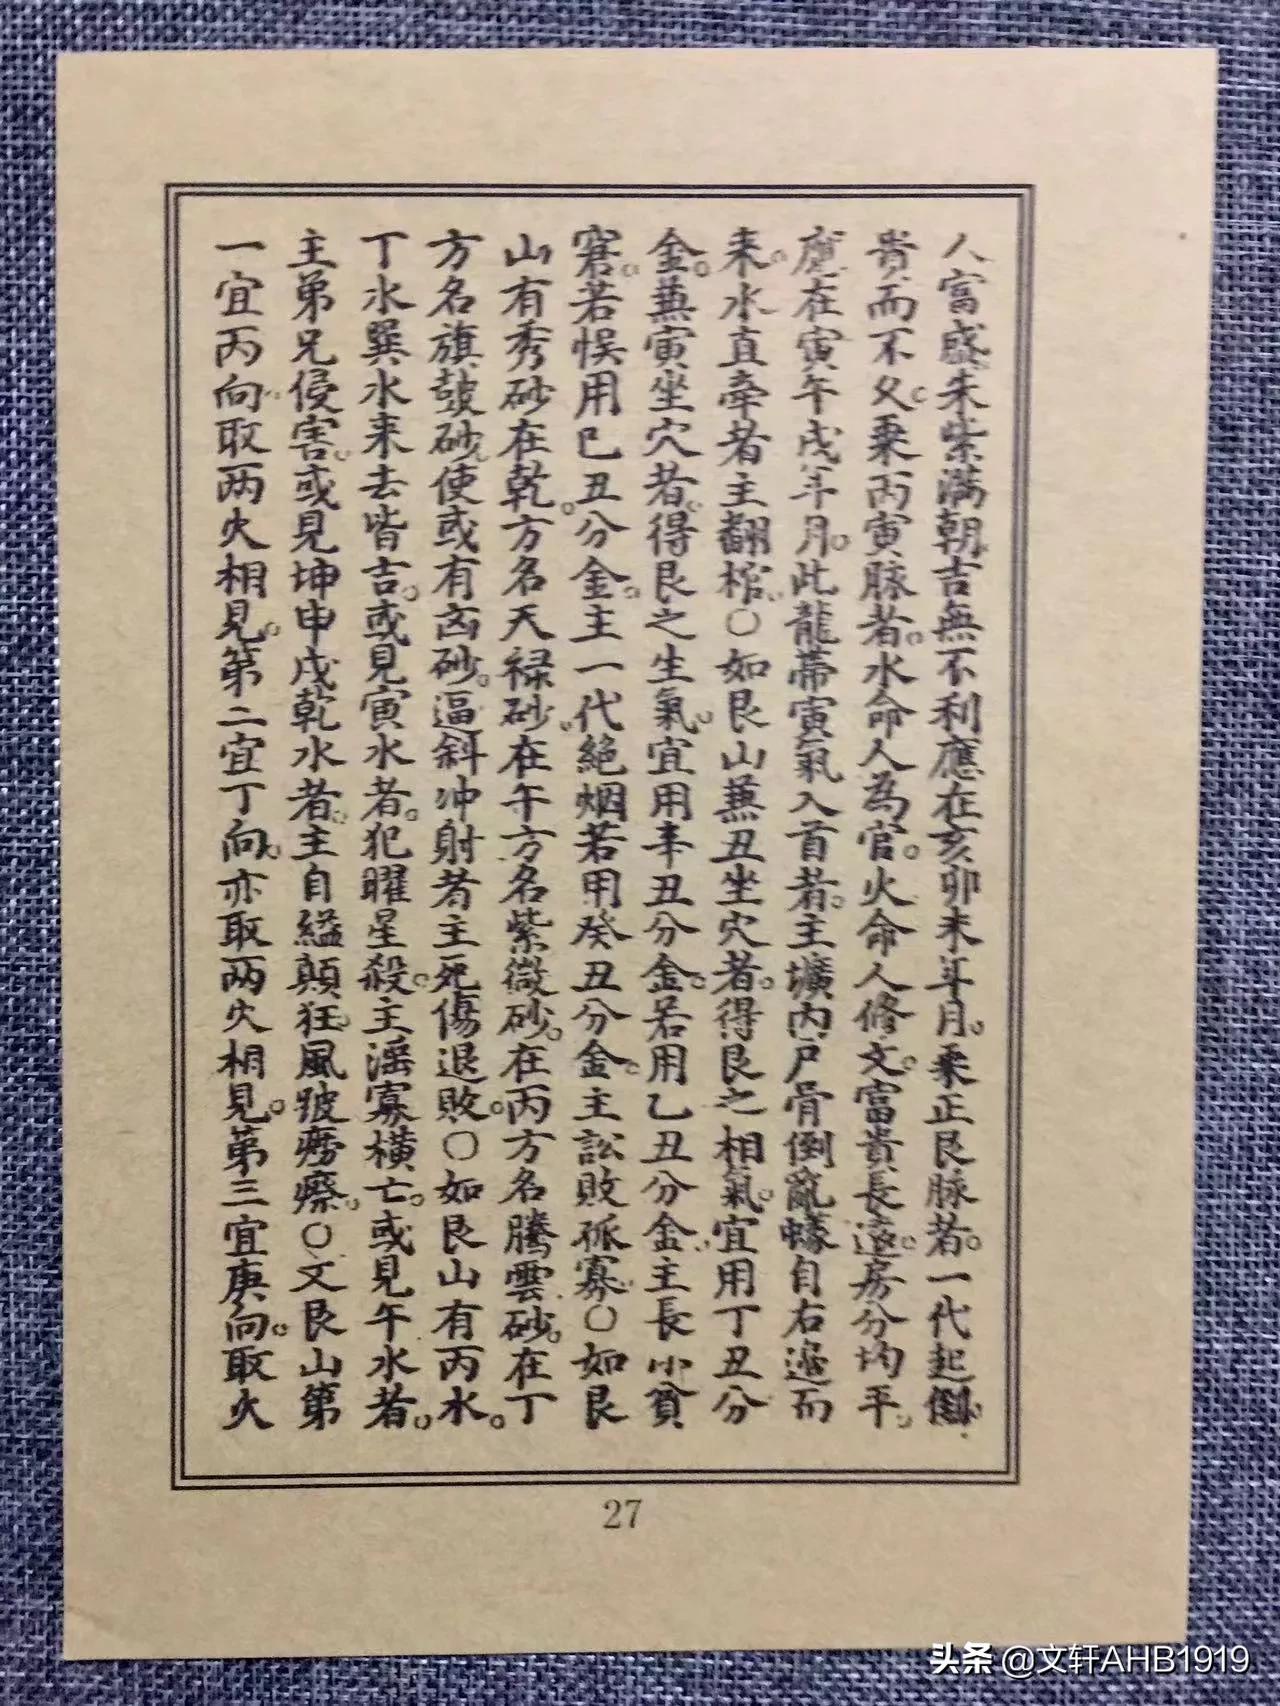 人富盛。朱紫滿朝。吉無不利。應在亥卯未年月。乗正艮脉者。一代起倒。
貴而不久。乗丙寅脉者。水命人為官。火命人脩文。富貴長遠。房分均平。
應在寅午戌年月。此龍帶寅氣入首者。主壙内尸骨倒亂。蟓自右邊而
来。水直牽者主翻棺。○如艮山兼丑坐穴者。得艮之相氣。宜用丁丑分
金。兼寅坐穴者。得艮之生氣。宜用辛丑分金。若用乙丑分金。主長小貧
窘。若悞用巳丑分金。主一代絶烟若用癸丑分金。主訟敗孤寡。○如艮
山有秀砂在乾。方名天禄砂。在午方名紫微砂。在丙方名騰雲砂。在丁
方名旗鼓砂。使或有凶砂。逼斜冲射者主死傷退敗。○如艮山有丙水。
丁水巽水来去皆吉。或見寅水者。犯曜星殺。主滛寡横亡。或見午水者。
主弟兄侵害。或見坤申戌乾水者。主自縊顛狂。風跛癆瘵。○文艮山第
一宜丙向。取兩火相見。第二宜丁向。亦取兩火相見。第三宜庚向。取火
27
头条 @文轩AHB1919